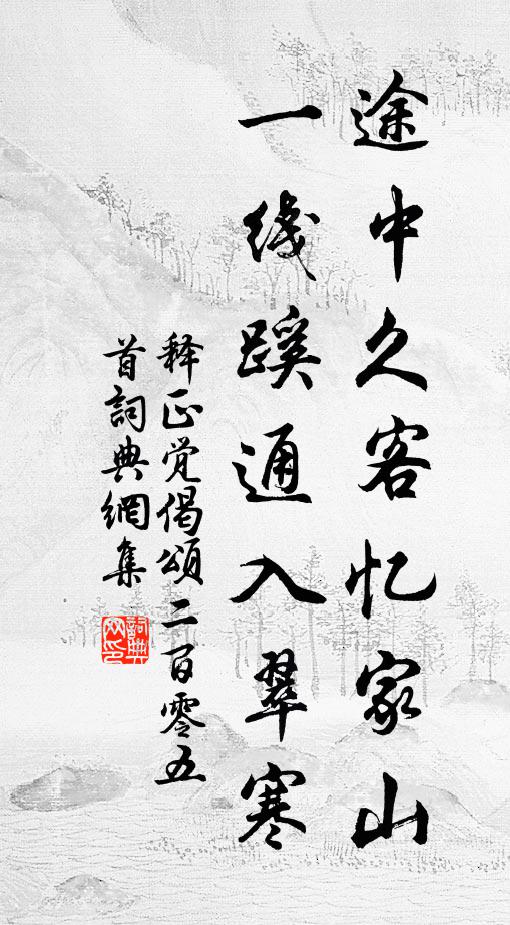 途中久客忆家山
一线蹊通入翠寒
释正觉偈颂二百零五
首詞典網集
詞典
网印